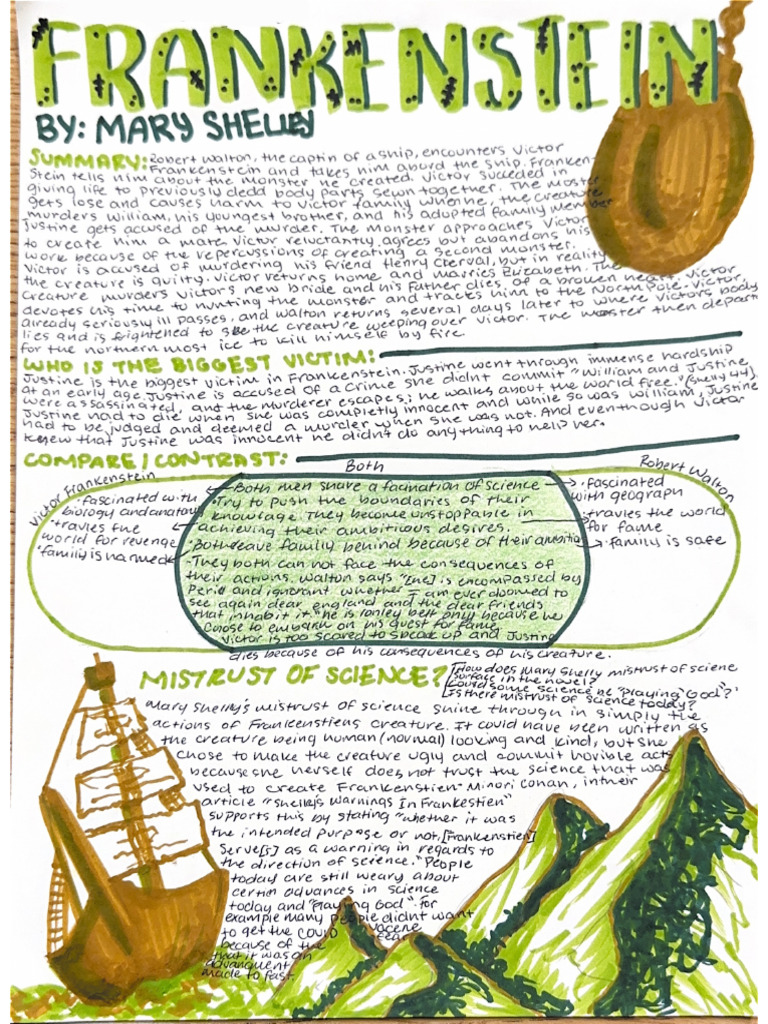 FRANKENSTEIN
BY: MARY SHELLEY
SUMMARY: Robert Walton, the captin of a ship, encounters Victor
Frankenstein and takes him abord the ship. Franken-
stein tells him about the monster he created. Victor succeded in
giving life to previously dedd body parts sewn together. The moster
gets lose and causes harm to Victor family when he, the creature
murders William, his youngest brother, and his adopted family member
Justine gets accused of the murder. The monster approaches Victor
to create him a mate. Victor reluctantly agrees but abandons his
work because of the repercussions of creating a second monster.
Victor is accused of murdering his friend Henry Clerval, but in reality
the creature is guilty. Victor returns home and marries Elizabeth. The
creature murders Victors new bride and his Father dies of a broken heart. Victor
devotes his time to hunting the monster and tracks him to the North Pole. Victor,
already seriously ill passes, and Walton returns several days later to where Victors body
lies and is frightened to see the creature weeping over Victor. The moster then depart
for the northern most ice to kill himself by fire
WHO IS THE BIGGEST VICTIM:
Justine is the biggest victim in Frankenstein. Justine went through immense hardship
at an early age. Justine is accused of a crime she didnt commit "William and Justine
were assassinated, and the murderer escapes; he walks about the world free." (Shelly 44)
Justine had to die when she was completly innocent and while so was William, Justine
had to be judged and deemed a murder when she was not. And even though Victor
knew that Justine was innocent he didnt do anything to help her.
COMPARE/CONTRAST:
Both
Victor Frankenstein
Robert Walton
·fascinated with
biology and anatomy
·travles the
world for revenge
·family is harmed
-Both men share a facination of science
-Try to push the boundaries of their
knowlrage. They become unstoppable in
achieving their ambitious desires.
-Both leave family behind because of their ambition
-They both can not face the consequences of
their actions. Walton says "[he] is encompassed by
peril and ignorant whether I am ever doomed to
see again dear england and the dear friends
that inhabit it." he is lonley but only because he
chose to embark on his quest for fame
Victor is too scared to speak up and Justine
dies because of his consequences of his creature.
·fascinated
with geograph
·travles the world
for fame
·family is safe
MISTRUST OF SCIENCE?
[How does Mary Shelly mistrust of sciene
surface in the novel?
Could some science be "playing God"?
Is there mistrust of science today?
Mary Shelly's mistrust of science shine through in simply the
actions of Frankenstiens creature. It could have been written as
the creature being human (normal) looking and kind, but she
chose to make the creature ugly and commit horible acts
because she herself does not trust the science that was
used to create Frankenstien. Minori Conan, in ther
article "Shelleys Warnings In Frankestien"
supports this by stating "whether it was
the intended purpose or not, [Frankenstien]
serve[s] as a warning in regards to
the direction of science." People
today are still weary about
certin advances in science
today and "playing God". for
example many people didnt want
to get the COVID vaccene
because of the fear
that it was an
advancment
made to fast.